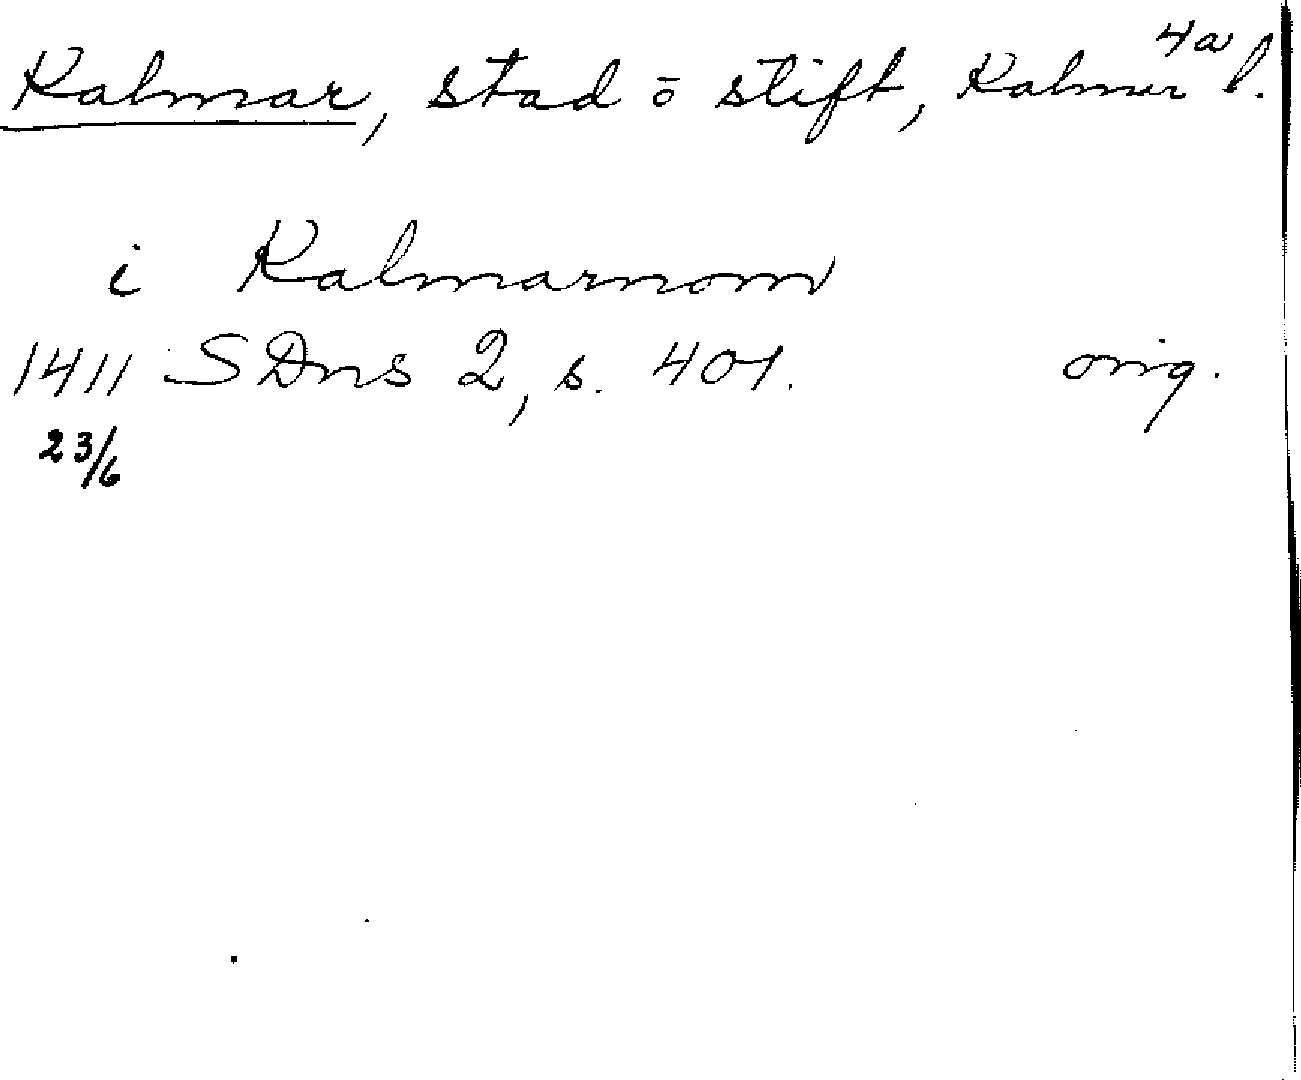 4a
Kalmar, stad ō stift, Kalmar l.
i Kalmarnom
1411 SDns 2, s. 401. orig.
23/6